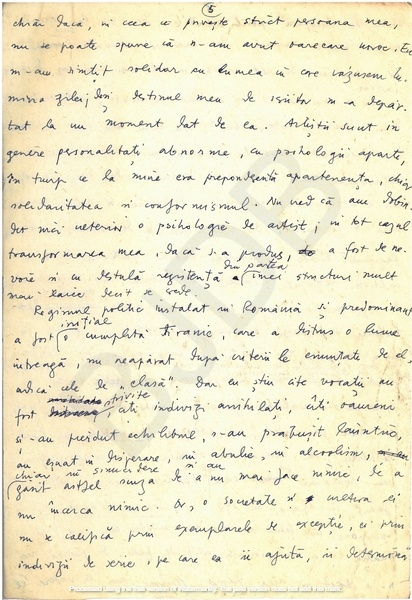 5
chiar dacă, în ceea ce privește strict persoana mea,
nu se poate spune că n-am avut oarecare noroc. Eu
m-am simțit solidar cu lumea în care văzusem lu-
mina zilei, deși destinul meu de scriitor m-a depăr-
tat la un moment dat de ea. Artiștii sunt în
genere personalități abnorme, cu psihologii aparte,
în timp ce la mine era preponderentă apartenența, chiar
solidaritatea și conformismul. Nu cred că am dobân-
dit mai ulterior o psihologie de artist; în tot cazul
transformarea mea, dacă s-a produs, a fost de ne-
voie și cu destulă rezistență din partea unei structuri mult
mai laice decât se crede.
Regimul politic instalat în România și predominant
a fost inițial o cumplită tiranie, care a distrus o lume
întreagă, nu neapărat după criteriile enunțate de el,
adică cele de „clasă". Dar eu știu câte vocații au
fost strivite, câți indivizi anihilați, câți oameni
și-au pierdut echilibrul, s-au prăbușit lăuntric,
au eșuat în disperare, în abulie, în alcoolism,
chiar în sinucidere și au
găsit astfel scuza de a nu mai face nimic, de a
nu încerca nimic. Or, o societate și cultura ei
nu se califică prin exemplarele de excepție, ci prin
indivizii de serie, pe care ea îi ajută, îi determină